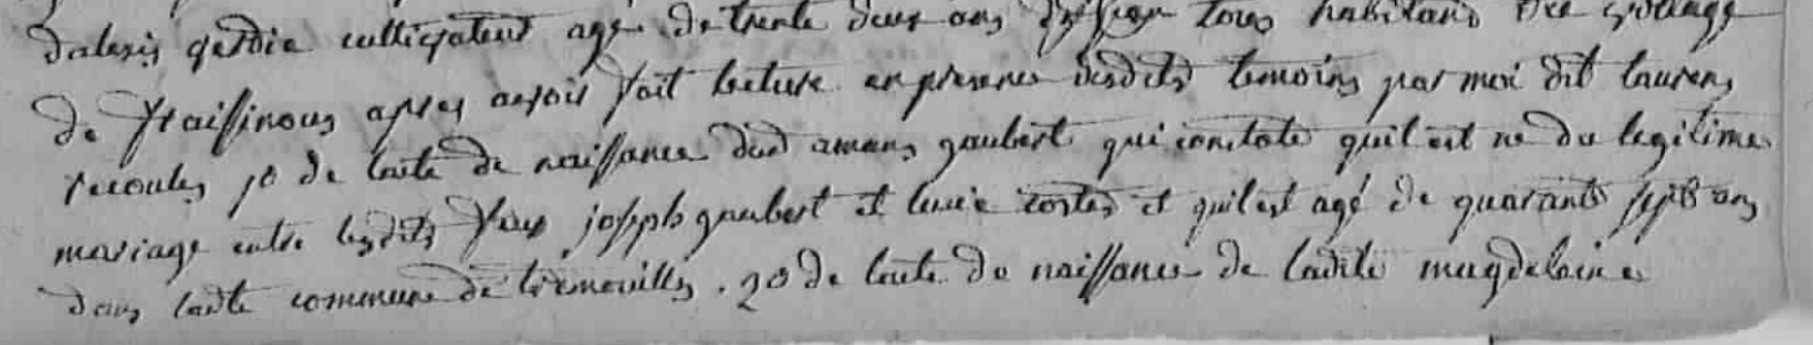 dalexis gerdie cultivateur agé de trente deux ans tous habitans
de fraissinous apres avoir fait lecture en presence desdits temoins par moi dit laurens
recoules 1º de lacte de naissance dud amans gaubert qui constate quil est ne du legitime
mariage entre lesdits feux joseph gaubert et lucie costes et quil est agé de quarante sept ans
dans ladte commune de tremouilles . 2º de lacte de naissance de ladite magdeleine